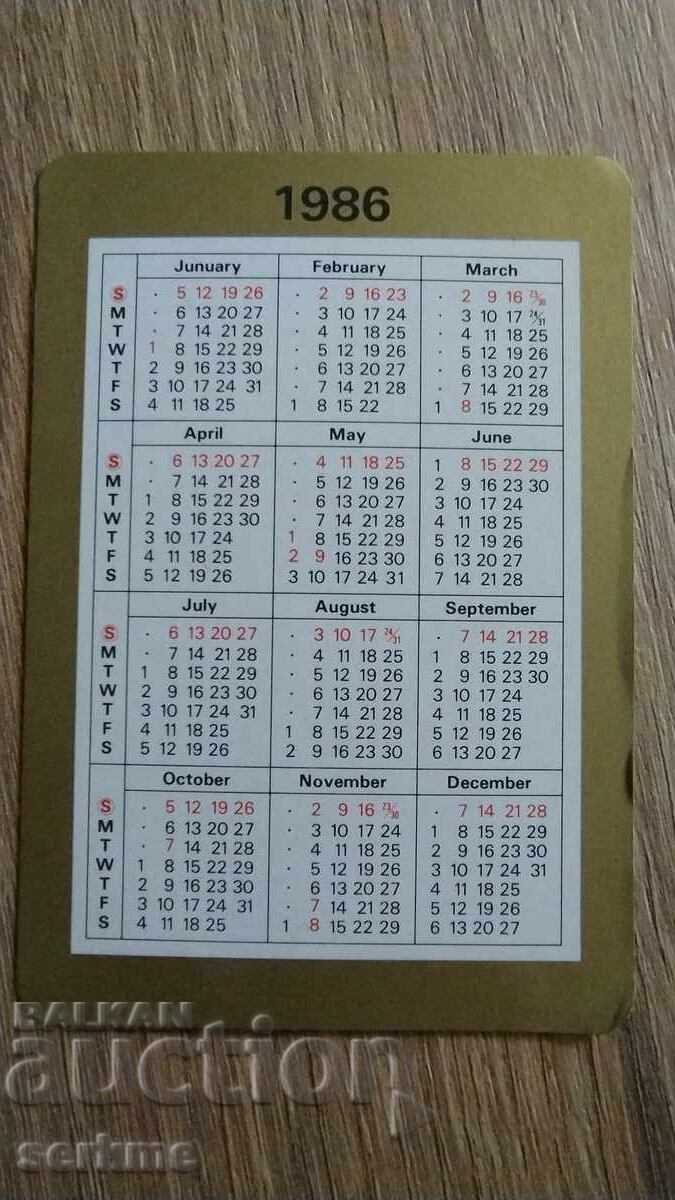 1986
Junuary February March
S · 5 12 19 26 · 2 9 16 23 · 2 9 16 23/30
M · 6 13 20 27 · 3 10 17 24 · 3 10 17 24/31
T · 7 14 21 28 · 4 11 18 25 · 4 11 18 25
W 1 8 15 22 29 · 5 12 19 26 · 5 12 19 26
T 2 9 16 23 30 · 6 13 20 27 · 6 13 20 27
F 3 10 17 24 31 · 7 14 21 28 · 7 14 21 28
S 4 11 18 25 1 8 15 22 1 8 15 22 29
April May June
S · 6 13 20 27 · 4 11 18 25 1 8 15 22 29
M · 7 14 21 28 · 5 12 19 26 2 9 16 23 30
T 1 8 15 22 29 · 6 13 20 27 3 10 17 24
W 2 9 16 23 30 · 7 14 21 28 4 11 18 25
T 3 10 17 24 1 8 15 22 29 5 12 19 26
F 4 11 18 25 2 9 16 23 30 6 13 20 27
S 5 12 19 26 3 10 17 24 31 7 14 21 28
July August September
S · 6 13 20 27 · 3 10 17 24/31 · 7 14 21 28
M · 7 14 21 28 · 4 11 18 25 1 8 15 22 29
T 1 8 15 22 29 · 5 12 19 26 2 9 16 23 30
W 2 9 16 23 30 · 6 13 20 27 3 10 17 24
T 3 10 17 24 31 · 7 14 21 28 4 11 18 25
F 4 11 18 25 1 8 15 22 29 5 12 19 26
S 5 12 19 26 2 9 16 23 30 6 13 20 27
October November December
S · 5 12 19 26 · 2 9 16 23/30 · 7 14 21 28
M · 6 13 20 27 · 3 10 17 24 1 8 15 22 29
T · 7 14 21 28 · 4 11 18 25 2 9 16 23 30
W 1 8 15 22 29 · 5 12 19 26 3 10 17 24 31
T 2 9 16 23 30 · 6 13 20 27 4 11 18 25
F 3 10 17 24 31 · 7 14 21 28 5 12 19 26
S 4 11 18 25 1 8 15 22 29 6 13 20 27
BALKAN
auction
serkme